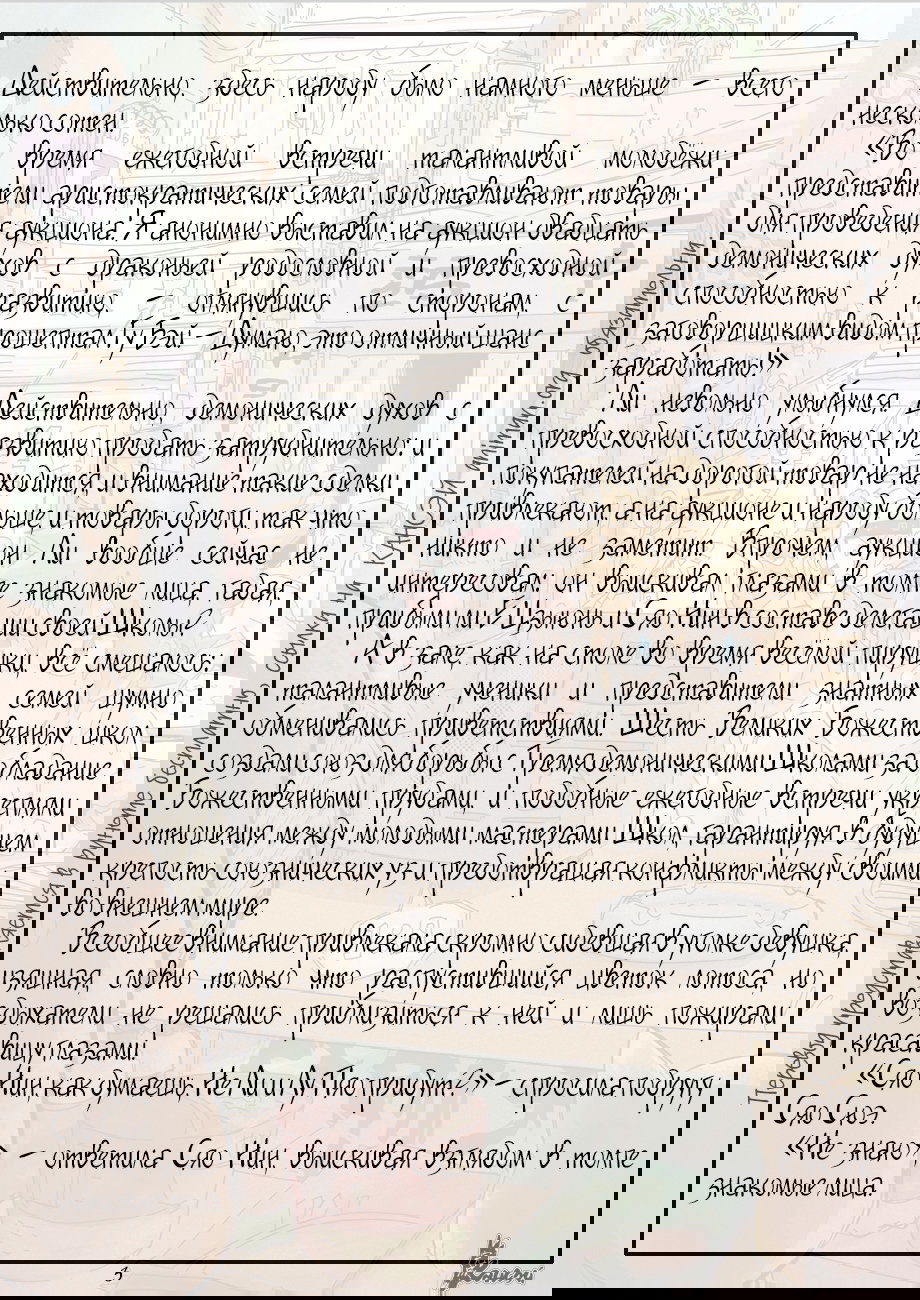 Действительно, здесь народу было намного меньше – всего
несколько сотен.
«Во время ежегодной встречи талантливой молодёжи
представители аристократических семей подготавливают товары
для проведения аукциона. Я анонимно выставил на аукцион двадцать
демонических духов с драконьей родословной и превосходной
способностью к развитию, – оглянувшись по сторонам, с
заговорщицким видом прошептал Гу Бэй – Думаю, это отличный шанс
заработать!»
Ли невольно улыбнулся. Действительно, демонических духов с
превосходной способностью к развитию продать затруднительно: и
покупателей на дорогой товар не находится, и внимание такие сделки
привлекают, а на аукционе и народу больше, и товары дороги, так что
никто и не заметит. Впрочем, аукцион Ли вообще сейчас не
интересовал: он выискивал глазами в толпе знакомые лица, гадая,
прибыли ли Цзыюнь и Сяо Нин в составе делегации своей Школы?
А в зале, как на столе во время весёлой пирушки, всё смешалось:
талантливые ученики и представители знатных семей шумно
обменивались приветствиями. Шесть Великих Божественных школ
создали союз для борьбы с Тремя демоническими Школами за обладание
Божественными гробами, и подобные ежегодные встречи укрепляли
отношения между молодыми мастерами Школ, гарантируя в будущем
крепость союзнических уз и предотвращая конфликты между своими
во внешнем мире.
Всеобщее внимание привлекала скромно сидевшая в уголке девушка,
изящная, словно только что распустившийся цветок лотоса, но
воздыхатели не решались приблизиться к ней и лишь пожирали
красавицу глазами.
«Сяо Нин, как думаешь, Не Ли и Лу Пяо придут?» – спросила подругу
Сяо Сюэ.
«Не знаю» – ответила Сяо Нин, выискивая взглядом в толпе
знакомые лица.
3